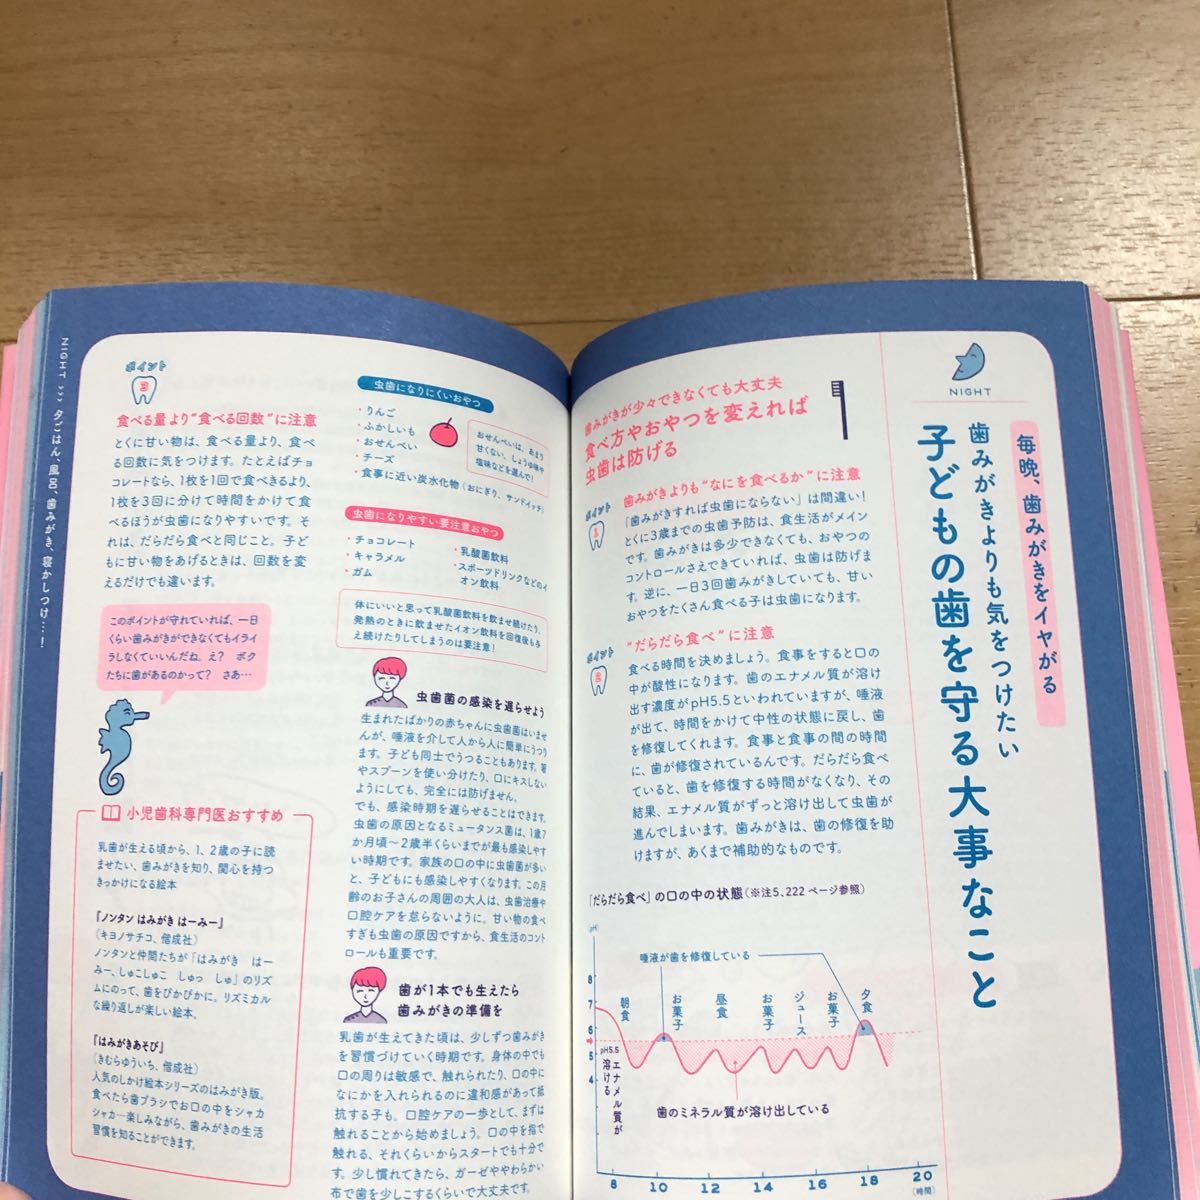 NIGHT
毎晩、歯みがきをイヤがる
歯みがきよりも気をつけたい
子どもの歯を守る大事なこと
歯みがきが少々できなくても大丈夫
食べ方やおやつを変えれば
虫歯は防げる
ポイント
1
歯みがきよりも“なにを食べるか”に注意
「歯みがきすれば虫歯にならない」は間違い!
とくに3歳までの虫歯予防は、食生活がメイン
です。歯みがきは多少できなくても、おやつの
コントロールさえできていれば、虫歯は防げま
す。逆に、一日3回歯みがきしていても、甘い
おやつをたくさん食べる子は虫歯になります。
ポイント
2
“だらだら食べ”に注意
食べる時間を決めましょう。食事をすると口の
中が酸性になります。歯のエナメル質が溶け
出す濃度がpH5.5といわれていますが、唾液
が出て、時間をかけて中性の状態に戻し、歯
を修復してくれます。食事と食事の間の時間
に、歯が修復されているんです。だらだら食べ
ていると、歯を修復する時間がなくなり、その
結果、エナメル質がずっと溶け出して虫歯が
進んでしまいます。歯みがきは、歯の修復を助
けますが、あくまで補助的なものです。
「だらだら食べ」の口の中の状態(※注5、222ページ参照)
pH
8
7
6
5
4
pH5.5
エナメル質が
溶ける
唾液が歯を修復している
朝食
お菓子
昼食
お菓子
ジュース
お菓子
夕食
歯のミネラル質が溶け出している
8 10 12 14 16 18 20
(時間)
NIGHT >>> 夕ごはん、風呂、歯みがき、寝かしつけ…!
ポイント
3
食べる量より“食べる回数”に注意
とくに甘い物は、食べる量より、食べ
る回数に気をつけます。たとえばチョ
コレートなら、1枚を1回で食べきるより、
1枚を3回に分けて時間をかけて食
べるほうが虫歯になりやすいです。そ
れは、だらだら食べと同じこと。子ど
もに甘い物をあげるときは、回数を変
えるだけでも違います。
このポイントが守れていれば、一日
くらい歯みがきができなくてもイライ
ラしなくていいんだね。え? ボク
たちに歯があるのかって? さあ…
小児歯科専門医おすすめ
乳歯が生える頃から、1、2歳の子に読
ませたい、歯みがきを知り、関心を持つ
きっかけになる絵本
『ノンタン はみがき はーみー』
(キヨノサチコ、偕成社)
ノンタンと仲間たちが「はみがき はー
みー、しゅこしゅこ しゅっ しゅ」のリズ
ムにのって、歯をぴかぴかに。リズミカル
な繰り返しが楽しい絵本。
『はみがきあそび』
(きむらゆういち、偕成社)
人気のしかけ絵本シリーズのはみがき版。
食べたら歯ブラシでお口の中をシャカ
シャカ…楽しみながら、歯みがきの生活
習慣を知ることができます。
虫歯になりにくいおやつ
・りんご
・ふかしいも
・おせんべい
・チーズ
・食事に近い炭水化物(おにぎり、サンドイッチ)
おせんべいは、あまり
甘くない、しょうゆ味や
塩味などを選んで!
虫歯になりやすい要注意おやつ
・チョコレート
・キャラメル
・ガム
・乳酸菌飲料
・スポーツドリンクなどのイ
オン飲料
体にいいと思って乳酸菌飲料を飲ませ続けたり、
発熱のときに飲ませたイオン飲料を回復後も与
え続けたりしてしまうのは要注意!
虫歯菌の感染を遅らせよう
生まれたばかりの赤ちゃんに虫歯菌はいませ
んが、唾液を介して人から人に簡単にうつり
ます。子ども同士でうつることもあります。箸
やスプーンを使い分けたり、口にキスしない
ようにしても、完全には防げません。
でも、感染時期を遅らせることはできます。
虫歯の原因となるミュータンス菌は、1歳7
か月頃〜2歳半くらいまでが最も感染しや
すい時期です。家族の口の中に虫歯菌が多い
と、子どもにも感染しやすくなります。この月
齢のお子さんの周囲の大人は、虫歯治療や
口腔ケアを怠らないように。甘い物の食べ
すぎも虫歯の原因ですから、食生活のコント
ロールも重要です。
歯が1本でも生えたら
歯みがきの準備を
乳歯が生えてきた頃は、少しずつ歯みがき
を習慣づけていく時期です。身体の中でも
口の周りは敏感で、触れられたり、口の中に
なにかを入れられるのに違和感があって抵
抗する子も。口腔ケアの一歩として、まずは
触れることから始めましょう。口の中を指で
触れる、それくらいからスタートでも十分で
す。少し慣れてきたら、ガーゼややわらかい
布で歯を少しこするくらいで大丈夫です。